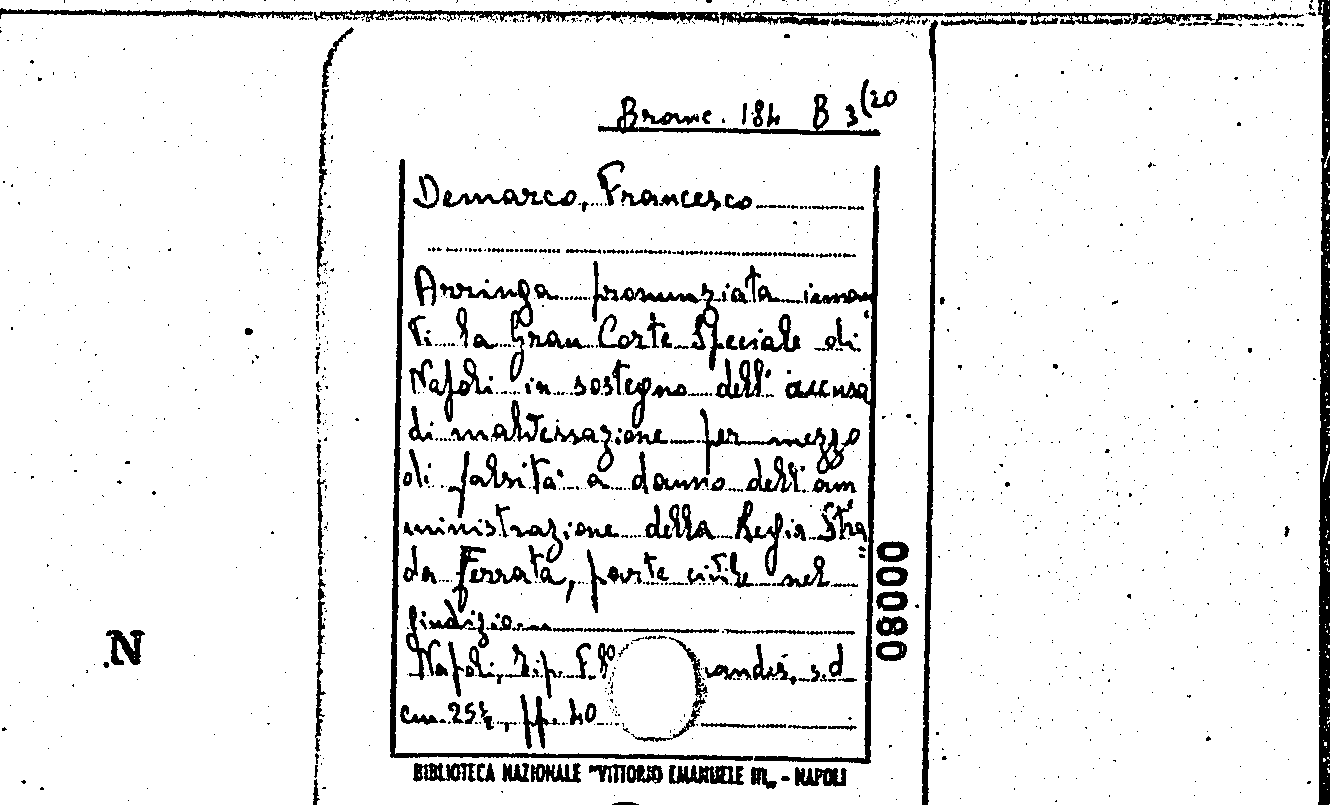 Branc. 184 B 3(20
Demarco, Francesco
Arringa pronunziata innan
ti la Gran Corte Speciale di
Napoli in sostegno dell'accusa
di malversazione per mezzo
di falsità a danno dell'am
ministrazione della Regia Stra
da Ferrata, parte civile nel
giudizio.
Napoli, Tip. F.
s.d
cm. 25½, pp. 40
000080
N
BIBLIOTECA NAZIONALE "VITTORIO EMANUELE III„ - NAPOLI